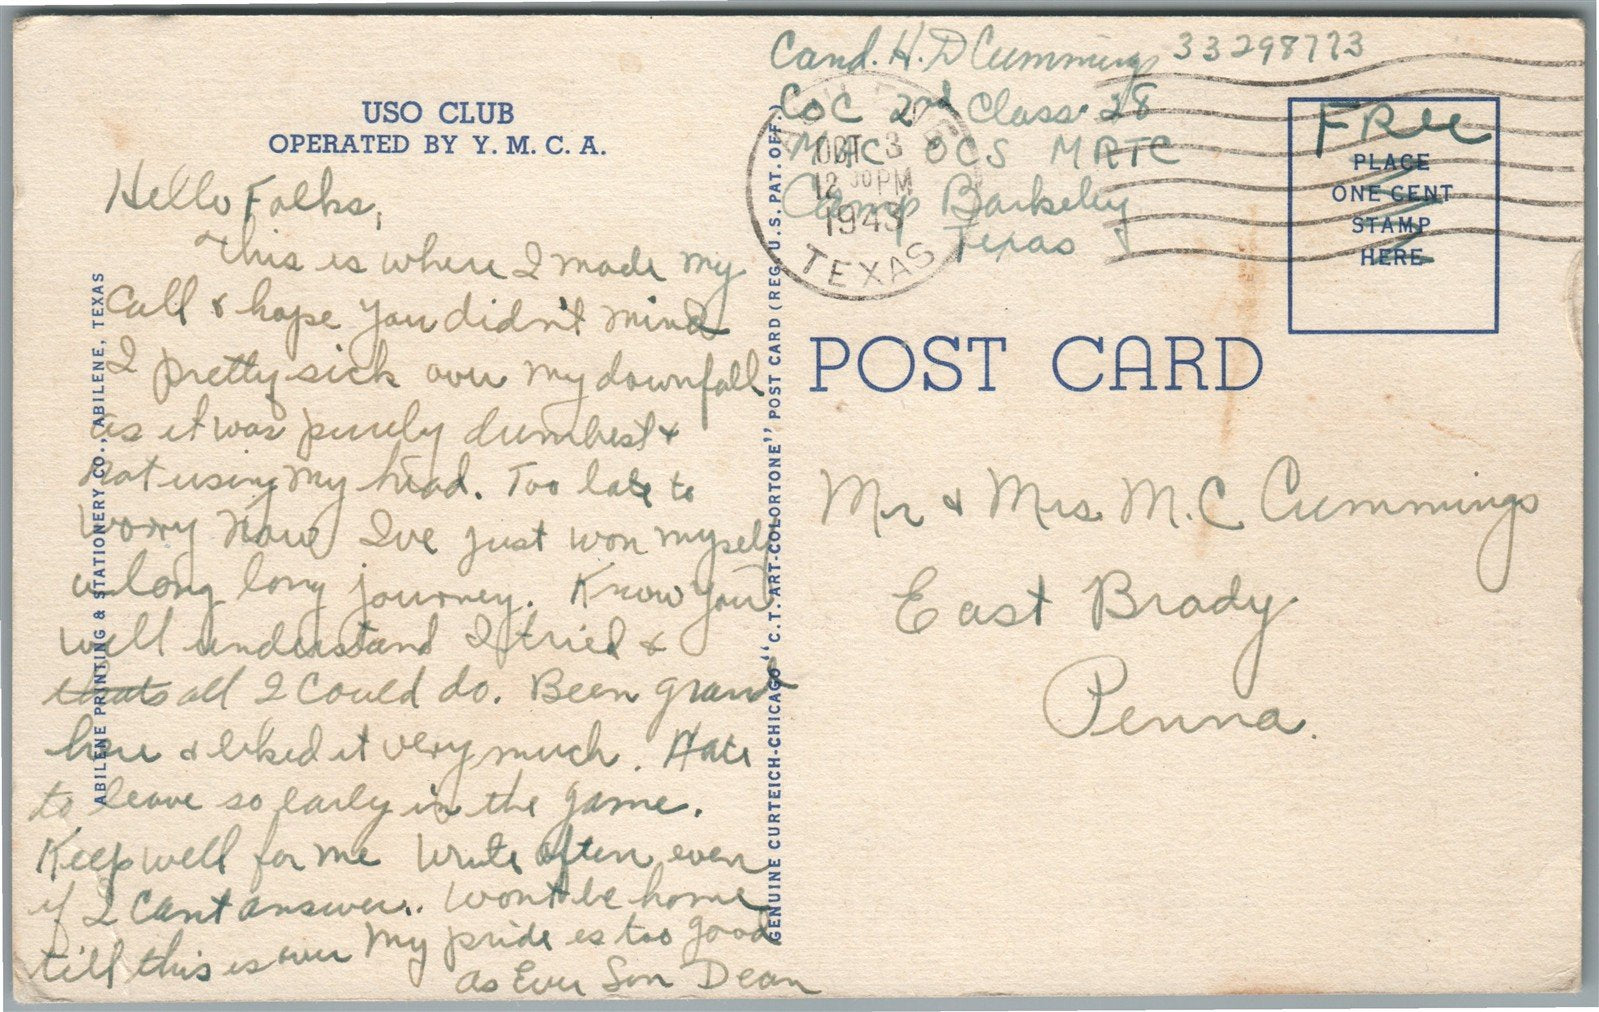 USO CLUB
OPERATED BY Y. M. C. A.
Hello Folks,
This is where I made my
call & hope you didn't mind
I pretty sick over my downfall
as it was purely dumbest &
not using my head. Too late to
worry now I've just won myself
a long long journey. Know you
will understand I tried &
thats all I could do. Been grand
here & liked it very much. Hate
to leave so early in the game.
Keep well for me Write often even
if I cant answer. Wont be home
till this is over My pride is too good
as Ever Son Dean
ABILENE PRINTING & STATIONERY CO., ABILENE, TEXAS
GENUINE CURTEICH-CHICAGO "C.T. ART-COLORTONE" POST CARD (REG. U.S. PAT. OFF.)
Cand. H. D Cummings 33298773
Co C 2nd Class 28
MAC OCS MRTC
Camp Barkeley
Texas
OCT 3
12 30 PM
1943
TEXAS
FREE
PLACE
ONE CENT
STAMP
HERE
POST CARD
Mr & Mrs M. C Cummings
East Brady
Penna.